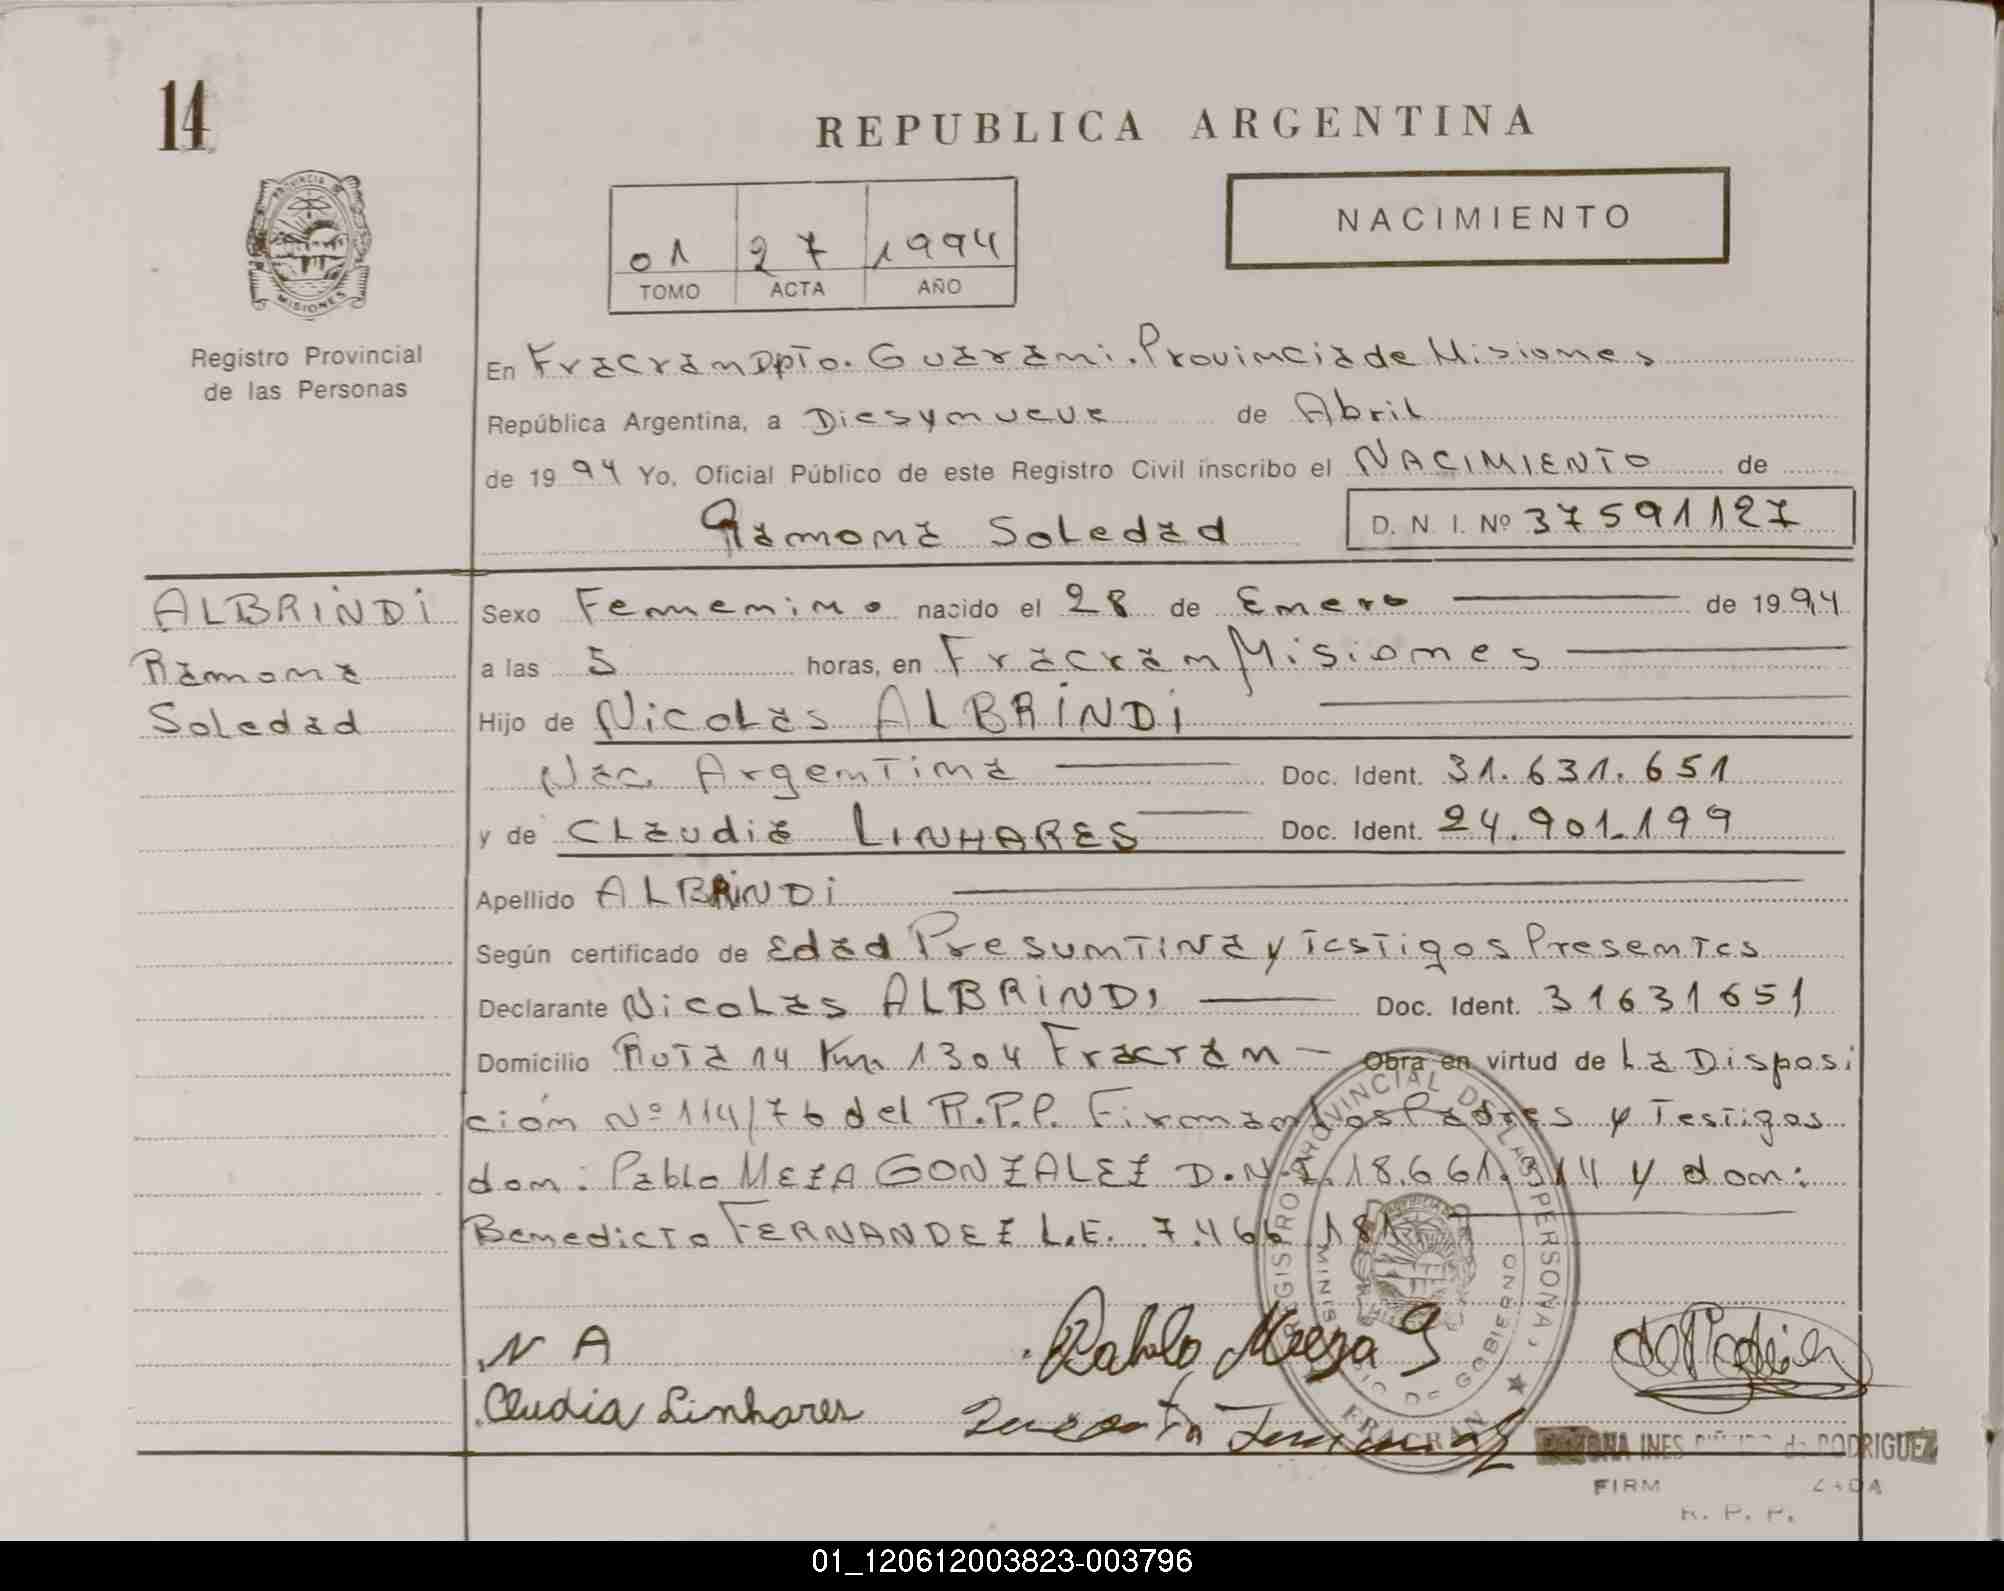 14
REPUBLICA ARGENTINA
PROVINCIA DE
MISIONES
01 27 1994
TOMO ACTA AÑO
NACIMIENTO
Registro Provincial
de las Personas
En Fracran Dpto. Guarani. Provincia de Misiones
República Argentina, a Diesynueve de Abril
de 1994 Yo, Oficial Público de este Registro Civil inscribo el NACIMIENTO de
Ramona Soledad D. N. I. Nº 37591127
ALBRINDI
Ramona
Soledad
Sexo Femenino nacido el 28 de Enero de 1994
a las 5 horas, en Fracran Misiones
Hijo de Nicolas ALBRINDI
Nac. Argentina Doc. Ident. 31.631.651
y de Claudia LINHARES Doc. Ident. 24.901.199
Apellido ALBRINDI
Según certificado de Edad Presuntiva y Testigos Presentes
Declarante Nicolas ALBRINDI Doc. Ident. 31631651
Domicilio Ruta 14 Km 1304 Fracran - Obra en virtud de La Disposi
ción Nº 114/76 del R.P.P. Firman los Padres y Testigos
don: Pablo MEZA GONZALEZ D.N.I. 18.661.314 y don:
Benedicto FERNANDEZ L.E. 7.466 181
REGISTRO PROVINCIAL DE LAS PERSONAS
MINISTERIO DE GOBIERNO
FRACRAN
N A
Claudia Linhares
Pablo Meza G
INES de RODRIGUEZ
R. P. P.
01_120612003823-003796